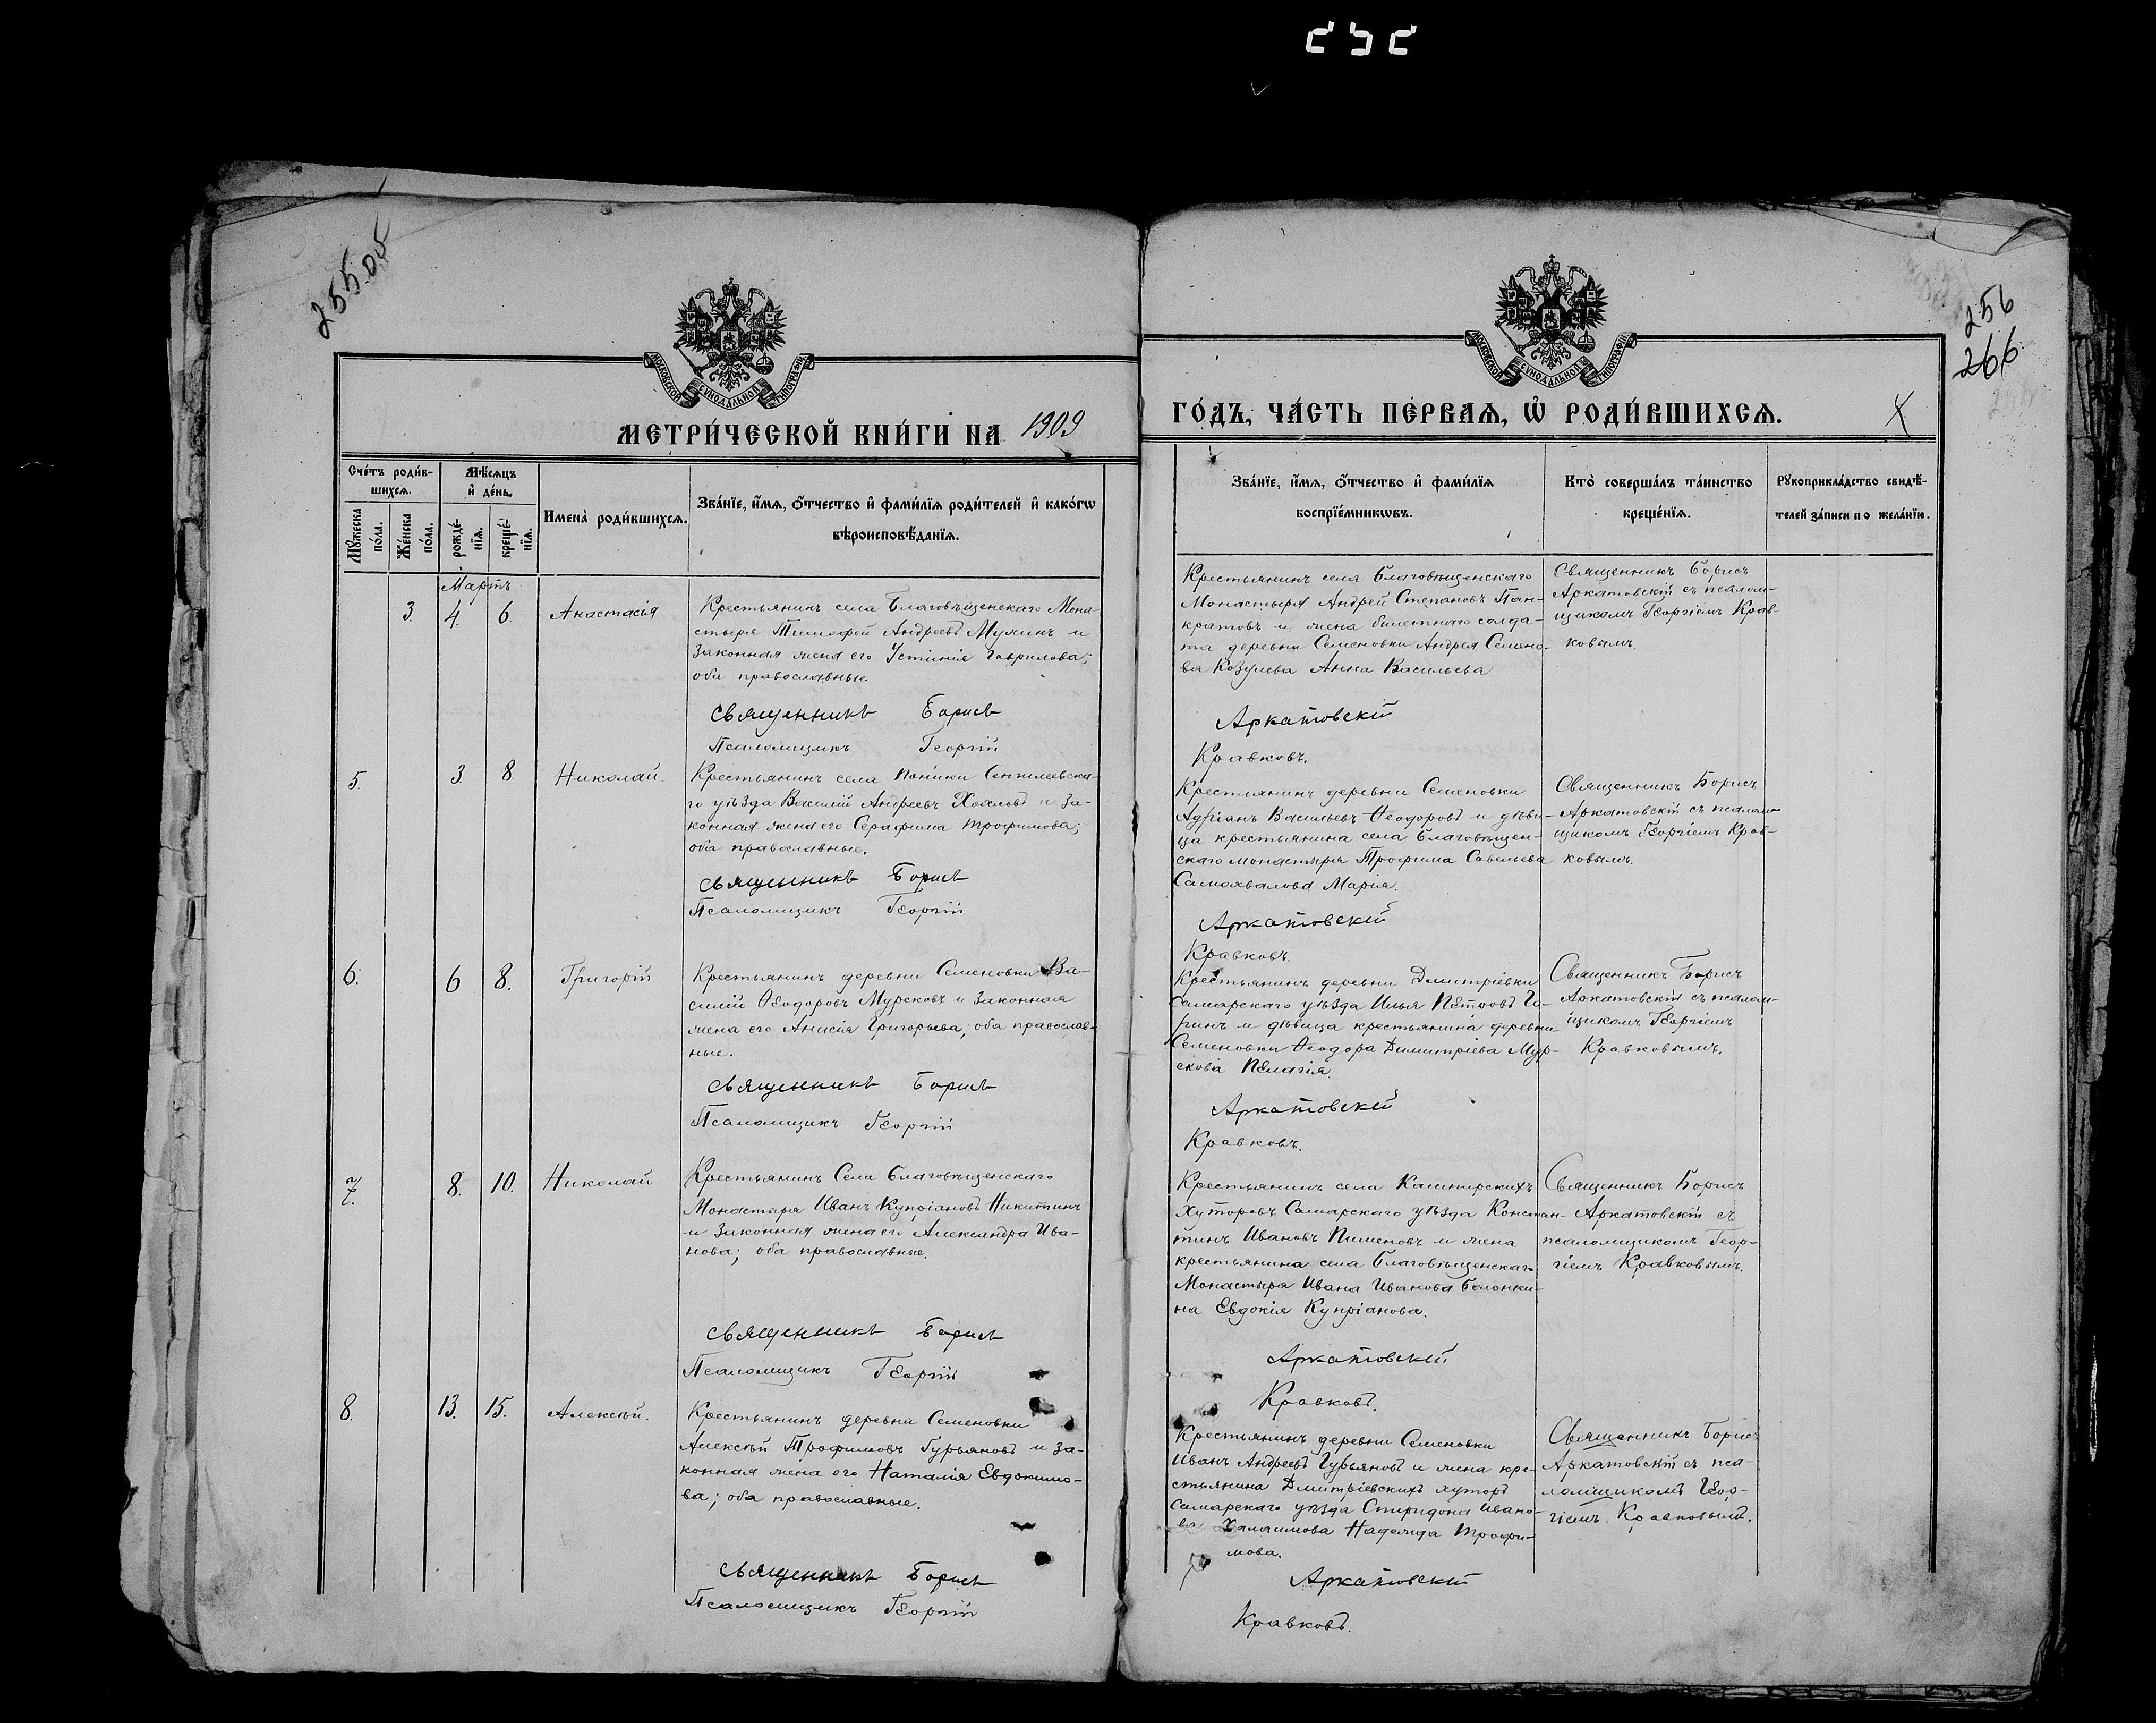 255 об
256
266
МОСКОВСКОЙ СѴНОДАЛЬНОЙ ТИПОГРАФІИ
МОСКОВСКОЙ СѴНОДАЛЬНОЙ ТИПОГРАФІИ
МЕТРИ́ЧЕСКОЙ КНИ́ГИ НА 1909
ГО́ДЪ, ЧА́СТЬ ПЕ́РВАѦ, Ѽ РОДИ́ВШИХСѦ.
Сче́тъ роди́в-
шихсѧ.
Мѣ́сѧцъ
и҆ де́нь.
Мꙋ́жеска
по́ла.
Же́нска
по́ла.
рожде́-
нїѧ.
креще́-
нїѧ.
Имена̀ роди́вшихсѧ.
Зва́нїе, и҆́мѧ, ѻ҆́тчество и҆ фами́лїѧ роди́телей и҆ како́гѡ
вѣроисповѣ́данїѧ.
Зва́нїе, и҆́мѧ, ѻ҆́тчество и҆ фами́лїѧ
воспрїе́мникѡвъ.
Кто̀ соверша́лъ та́инство
креще́нїѧ.
Рꙋкоприкла́дство свидѣ́-
телей за́писи по жела́нїю.
Мартъ
3. 4. 6. Анастасія
Крестьянинъ села Благовѣщенскаго Мона-
стыря Тимофей Андреевъ Мухинъ и
законная жена его Устинія Гаврилова;
оба православные.
Священникъ Борисъ
Псаломщикъ Георгій
Крестьянинъ села Благовѣщенскаго
Монастыря Андрей Степановъ Пан-
кратовъ и жена билетнаго солда-
та деревни Семеновки Андрея Семено-
ва Козулева Анна Васильева
Аркатовскій
Кравковъ.
Священникъ Борисъ
Аркатовскій съ псалом-
щикомъ Георгіемъ Крав-
ковымъ.
5. 3. 8. Николай.
Крестьянинъ села Поники Сенгилеевска-
го уѣзда Василій Андреевъ и за-
конная жена его Серафима Трофимова;
оба православные.
Священникъ Борисъ
Псаломщикъ Георгій
Крестьянинъ деревни Семеновки
Адріанъ Васильевъ Ѳеодоровъ и дѣви-
ца крестьянина села Благовѣщен-
скаго монастыря Трофима Савельева
Самохвалова Марія.
Аркатовскій
Кравковъ.
Священникъ Борисъ
Аркатовскій съ псалом-
щикомъ Георгіемъ Крав-
ковымъ.
6. 6 8. Григорій
Крестьянинъ деревни Семеновки Ва-
силій Ѳеодоровъ Мурсковъ и законная
жена его Анисія Григорьева; оба православ-
ные.
Священникъ Борисъ
Псаломщикъ Георгій
Крестьянинъ деревни Дмитріевки
Самарскаго уѣзда Илья Петровъ Го-
ринъ и дѣвица крестьянина деревни
Семеновки Ѳеодора Димитріева Мур-
скова Пелагія.
Аркатовскій
Кравковъ.
Священникъ Борисъ
Аркатовскій съ псалом-
щикомъ Георгіемъ
Кравковымъ.
7. 8. 10. Николай
Крестьянинъ Села Благовѣщенскаго
Монастыря Иванъ Купріановъ Никитинъ
и законная жена его Александра Ива-
нова; оба православные.
Священникъ Борисъ
Псаломщикъ Георгій
Крестьянинъ села Каширскихъ
Хуторовъ Самарскаго уѣзда Констан-
тинъ Ивановъ Пименовъ и жена
крестьянина села Благовѣщенскаго
Монастыря Ивана Иванова Болонки-
на Евдокія Купріанова.
Аркатовскій
Кравковъ.
Священникъ Борисъ
Аркатовскій съ
псаломщикомъ Геор-
гіемъ Кравковымъ.
8. 13. 15. Алексѣй.
Крестьянинъ деревни Семеновки
Алексѣй Трофимовъ Гурьяновъ и за-
конная жена его Наталія Евдокимо-
ва; оба православные.
Священникъ Борисъ
Псаломщикъ Георгій
Крестьянинъ деревни Семеновки
Иванъ Андреевъ Гурьяновъ и жена кре-
стьянина Дмитріевскихъ хуторъ
Самарскаго уѣзда Спиридона Ивано-
ва Надежда Трофи-
мова.
Аркатовскій
Кравковъ.
Священникъ Борисъ
Аркатовскій съ пса-
ломщикомъ Геор-
гіемъ Кравковымъ.